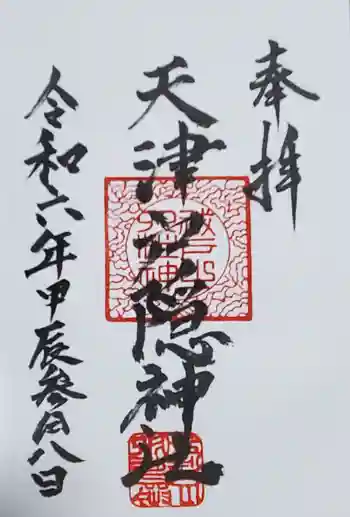 奉拝
天津神社
令和六年甲辰参月八日